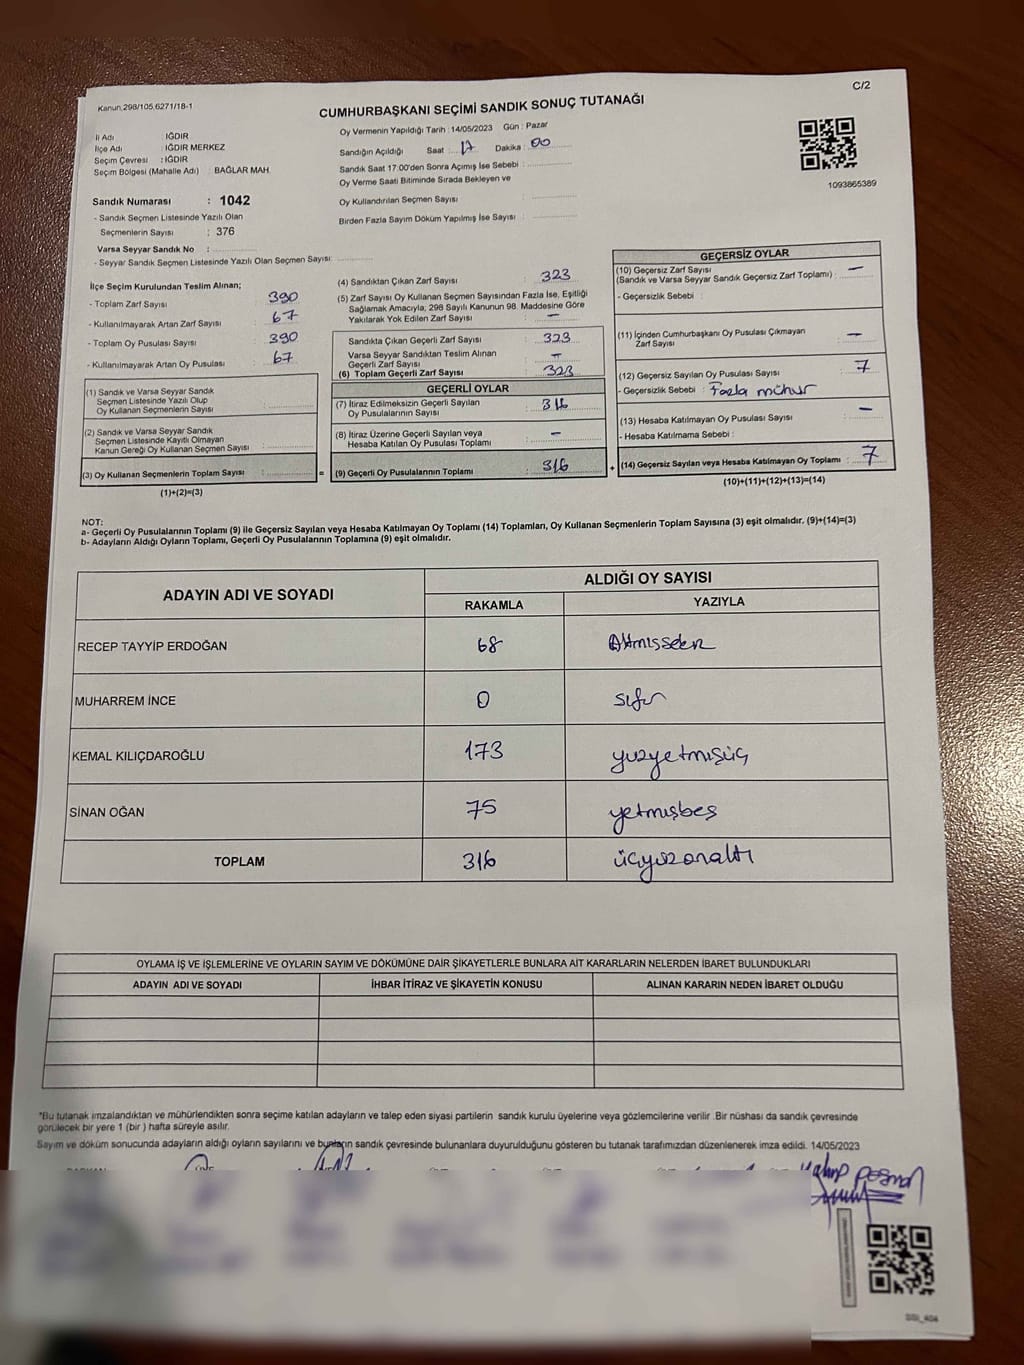 Kanun,298/105,6271/18-1
C/2
CUMHURBAŞKANI SEÇİMİ SANDIK SONUÇ TUTANAĞI
İl Adı : IĞDIR
İlçe Adı : IĞDIR MERKEZ
Seçim Çevresi : IĞDIR
Seçim Bölgesi (Mahalle Adı) : BAĞLAR MAH.
Oy Vermenin Yapıldığı Tarih : 14/05/2023 Gün : Pazar
Sandığın Açıldığı Saat : 17 Dakika : 00
Sandık Saat 17.00'den Sonra Açımış İse Sebebi :
Oy Verme Saati Bitiminde Sırada Bekleyen ve
Oy Kullandırılan Seçmen Sayısı :
Birden Fazla Sayım Döküm Yapılmış İse Sayısı :
1093865389
Sandık Numarası : 1042
- Sandık Seçmen Listesinde Yazılı Olan
Seçmenlerin Sayısı : 376
Varsa Seyyar Sandık No :
- Seyyar Sandık Seçmen Listesinde Yazılı Olan Seçmen Sayısı:
İlçe Seçim Kurulundan Teslim Alınan;
- Toplam Zarf Sayısı : 390
- Kullanılmayarak Artan Zarf Sayısı : 67
- Toplam Oy Pusulası Sayısı : 390
- Kullanılmayarak Artan Oy Pusulası : 67
(1) Sandık ve Varsa Seyyar Sandık
Seçmen Listesinde Yazılı Olup
Oy Kullanan Seçmenlerin Sayısı :
(2) Sandık ve Varsa Seyyar Sandık
Seçmen Listesinde Kayıtlı Olmayan
Kanun Gereği Oy Kullanan Seçmen Sayısı :
(3) Oy Kullanan Seçmenlerin Toplam Sayısı : =
(1)+(2)=(3)
(4) Sandıktan Çıkan Zarf Sayısı : 323
(5) Zarf Sayısı Oy Kullanan Seçmen Sayısından Fazla İse, Eşitliği
Sağlamak Amacıyla, 298 Sayılı Kanunun 98. Maddesine Göre
Yakılarak Yok Edilen Zarf Sayısı : –
Sandıkta Çıkan Geçerli Zarf Sayısı : 323
Varsa Seyyar Sandıktan Teslim Alınan
Geçerli Zarf Sayısı : –
(6) Toplam Geçerli Zarf Sayısı : 323
GEÇERLİ OYLAR
(7) İtiraz Edilmeksizin Geçerli Sayılan
Oy Pusulalarının Sayısı : 316
(8) İtiraz Üzerine Geçerli Sayılan veya
Hesaba Katılan Oy Pusulası Toplamı : –
(9) Geçerli Oy Pusulalarının Toplamı : 316 +
GEÇERSİZ OYLAR
(10) Geçersiz Zarf Sayısı : –
(Sandık ve Varsa Seyyar Sandık Geçersiz Zarf Toplamı)
- Geçersizlik Sebebi :
(11) İçinden Cumhurbaşkanı Oy Pusulası Çıkmayan
Zarf Sayısı : –
(12) Geçersiz Sayılan Oy Pusulası Sayısı : 7
- Geçersizlik Sebebi : Fazla mühür
(13) Hesaba Katılmayan Oy Pusulası Sayısı : –
- Hesaba Katılmama Sebebi :
(14) Geçersiz Sayılan veya Hesaba Katılmayan Oy Toplamı : 7
(10)+(11)+(12)+(13)=(14)
NOT:
a- Geçerli Oy Pusulalarının Toplamı (9) ile Geçersiz Sayılan veya Hesaba Katılmayan Oy Toplamı (14) Toplamları, Oy Kullanan Seçmenlerin Toplam Sayısına (3) eşit olmalıdır. (9)+(14)=(3)
b- Adayların Aldığı Oyların Toplamı, Geçerli Oy Pusulalarının Toplamına (9) eşit olmalıdır.
ADAYIN ADI VE SOYADI ALDIĞI OY SAYISI
RAKAMLA YAZIYLA
RECEP TAYYİP ERDOĞAN 68 Altmışsekiz
MUHARREM İNCE 0 sıfır
KEMAL KILIÇDAROĞLU 173 yüzyetmişüç
SİNAN OĞAN 75 yetmişbeş
TOPLAM 316 üçyüzonaltı
OYLAMA İŞ VE İŞLEMLERİNE VE OYLARIN SAYIM VE DÖKÜMÜNE DAİR ŞİKAYETLERLE BUNLARA AİT KARARLARIN NELERDEN İBARET BULUNDUKLARI
ADAYIN ADI VE SOYADI İHBAR İTİRAZ VE ŞİKAYETİN KONUSU ALINAN KARARIN NEDEN İBARET OLDUĞU
*Bu tutanak imzalandıktan ve mühürlendikten sonra seçime katılan adayların ve talep eden siyasi partilerin sandık kurulu üyelerine veya gözlemcilerine verilir .Bir nüshası da sandık çevresinde
görülecek bir yere 1 (bir ) hafta süreyle asılır.
Sayım ve döküm sonucunda adayların aldığı oyların sayılarını ve bunların sandık çevresinde bulunanlara duyurulduğunu gösteren bu tutanak tarafımızdan düzenlenerek imza edildi. 14/05/2023